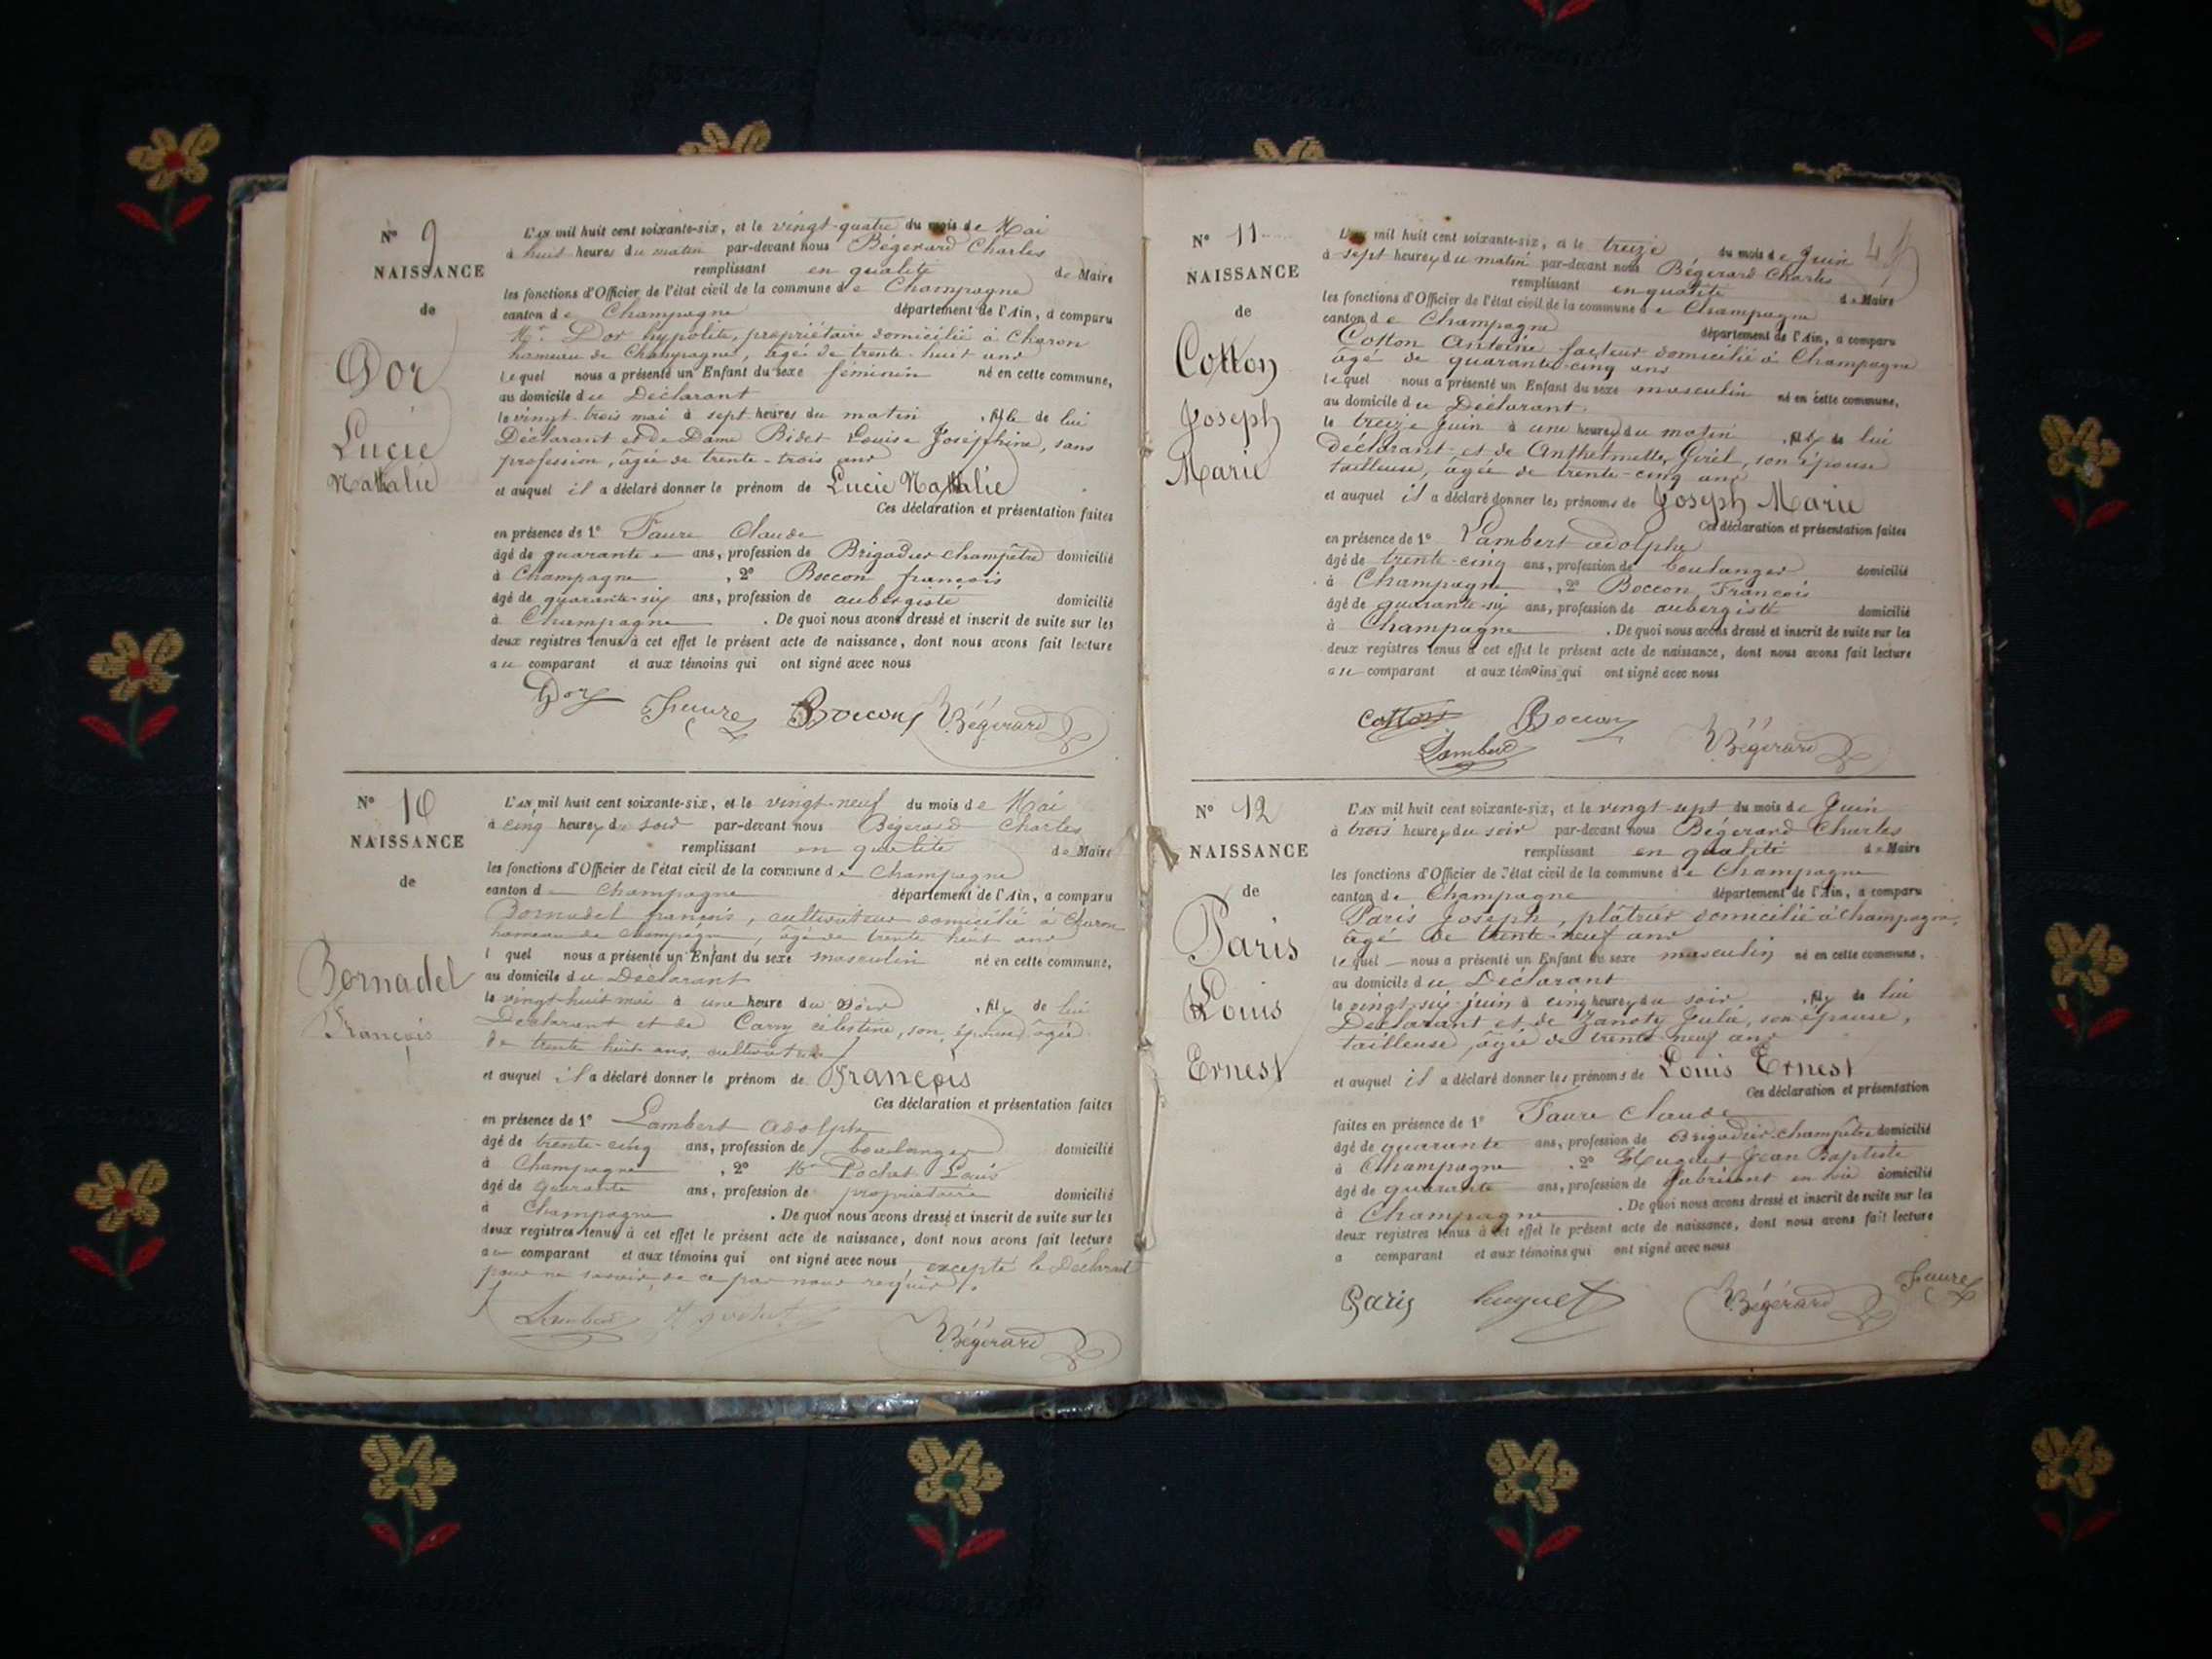 N° 9
NAISSANCE
de
Dor
Lucie
Nathalie
L'AN mil huit cent soixante-six, et le vingt-quatre du mois de Mai
à huit heures du matin par-devant nous Bégerard Charles
remplissant en qualité de Maire
les fonctions d'Officier de l'état civil de la commune de Champagne
canton de Champagne département de l'Ain, a comparu
Mr. Dor hypolite, propriétaire domicilié à Charon
hameau de Champagne, âgé de trente-huit ans
lequel nous a présenté un Enfant du sexe féminin né en cette commune,
au domicile du Déclarant
le vingt-trois mai à sept heures du matin, fille de lui
Déclarant et de Dame Bidet Louise Joséphine, sans
profession, âgée de trente-trois ans
et auquel il a déclaré donner le prénom de Lucie Nathalie
Ces déclaration et présentation faites
en présence de 1° Faure Claude
âgé de quarante ans, profession de Brigadier champêtre domicilié
à Champagne, 2° Boccon françois
âgé de quarante-six ans, profession de aubergiste domicilié
à Champagne. De quoi nous avons dressé et inscrit de suite sur les
deux registres tenus à cet effet le présent acte de naissance, dont nous avons fait lecture
au comparant et aux témoins qui ont signé avec nous
Dor Faure Boccon Bégerard
N° 10
NAISSANCE
de
Bornadel
François
L'AN mil huit cent soixante-six, et le vingt-neuf du mois de Mai
à cinq heures du soir par-devant nous Bégerard Charles
remplissant en qualité de Maire
les fonctions d'Officier de l'état civil de la commune de Champagne
canton de Champagne département de l'Ain, a comparu
Bornadel françois, cultivateur domicilié à Charon
hameau de champagne, âgé de trente huit ans
l quel nous a présenté un Enfant du sexe masculin né en cette commune,
au domicile du Déclarant
le vingt-huit mai à une heure du soir, fils de lui
Déclarant et de Carry célestine, son épouse âgée
de trente huit ans,
et auquel il a déclaré donner le prénom de François
Ces déclaration et présentation faites
en présence de 1° Lambert Adolphe
âgé de trente-cinq ans, profession de boulanger domicilié
à Champagne, 2° Mr Pochet Louis
âgé de quarante ans, profession de propriétaire domicilié
à Champagne. De quoi nous avons dressé et inscrit de suite sur les
deux registres tenus à cet effet le présent acte de naissance, dont nous avons fait lecture
au comparant et aux témoins qui ont signé avec nous, excepté le Déclarant
pour ne savoir, de ce par nous requis.
Lambert Bégerard
N° 11
NAISSANCE
de
Cotton
Joseph
Marie
L'AN mil huit cent soixante-six, et le treize du mois de Juin
à sept heures du matin par-devant nous Bégerard Charles
remplissant en qualité de Maire
les fonctions d'Officier de l'état civil de la commune de Champagne
canton de Champagne département de l'Ain, a comparu
Cotton Antoine facteur domicilié à Champagne
âgé de quarante-cinq ans
lequel nous a présenté un Enfant du sexe masculin né en cette commune,
au domicile du Déclarant.
le treize Juin à une heure du matin, fils de lui
Déclarant et de Anthelmette, son épouse
tailleuse, âgée de trente-cinq ans
et auquel il a déclaré donner les prénoms de Joseph Marie
Ces déclaration et présentation faites
en présence de 1° Lambert adolphe
âgé de trente-cinq ans, profession de boulanger domicilié
à Champagne, 2° Boccon, François
âgé de quarante-six ans, profession de aubergiste domicilié
à Champagne. De quoi nous avons dressé et inscrit de suite sur les
deux registres tenus à cet effet le présent acte de naissance, dont nous avons fait lecture
au comparant et aux témoins qui ont signé avec nous
Cotton Boccon
Lambert Bégerard
N° 12
NAISSANCE
de
Paris
Louis
Ernest
L'AN mil huit cent soixante-six, et le vingt-sept du mois de Juin
à trois heures du soir par-devant nous Bégerard Charles
remplissant en qualité de Maire
les fonctions d'Officier de l'état civil de la commune de Champagne
canton de Champagne département de l'Ain, a comparu
Paris Joseph, plâtrier domicilié à champagne,
âgé de trente-neuf ans
lequel nous a présenté un Enfant du sexe masculin né en cette commune,
au domicile du Déclarant
le vingt-six juin à cinq heures du soir, fils de lui
Déclarant et de Zanoty Julie, son épouse,
tailleuse, âgée de trente-neuf ans
et auquel il a déclaré donner les prénoms de Louis Ernest
Ces déclaration et présentation
faites en présence de 1° Faure Claude
âgé de quarante ans, profession de Brigadier-champêtre domicilié
à Champagne, 2° Huguet Jean Baptiste
âgé de quarante ans, profession de fabricant en soie domicilié
à Champagne. De quoi nous avons dressé et inscrit de suite sur les
deux registres tenus à cet effet le présent acte de naissance, dont nous avons fait lecture
a comparant et aux témoins qui ont signé avec nous
Paris huguet Bégerard Faure